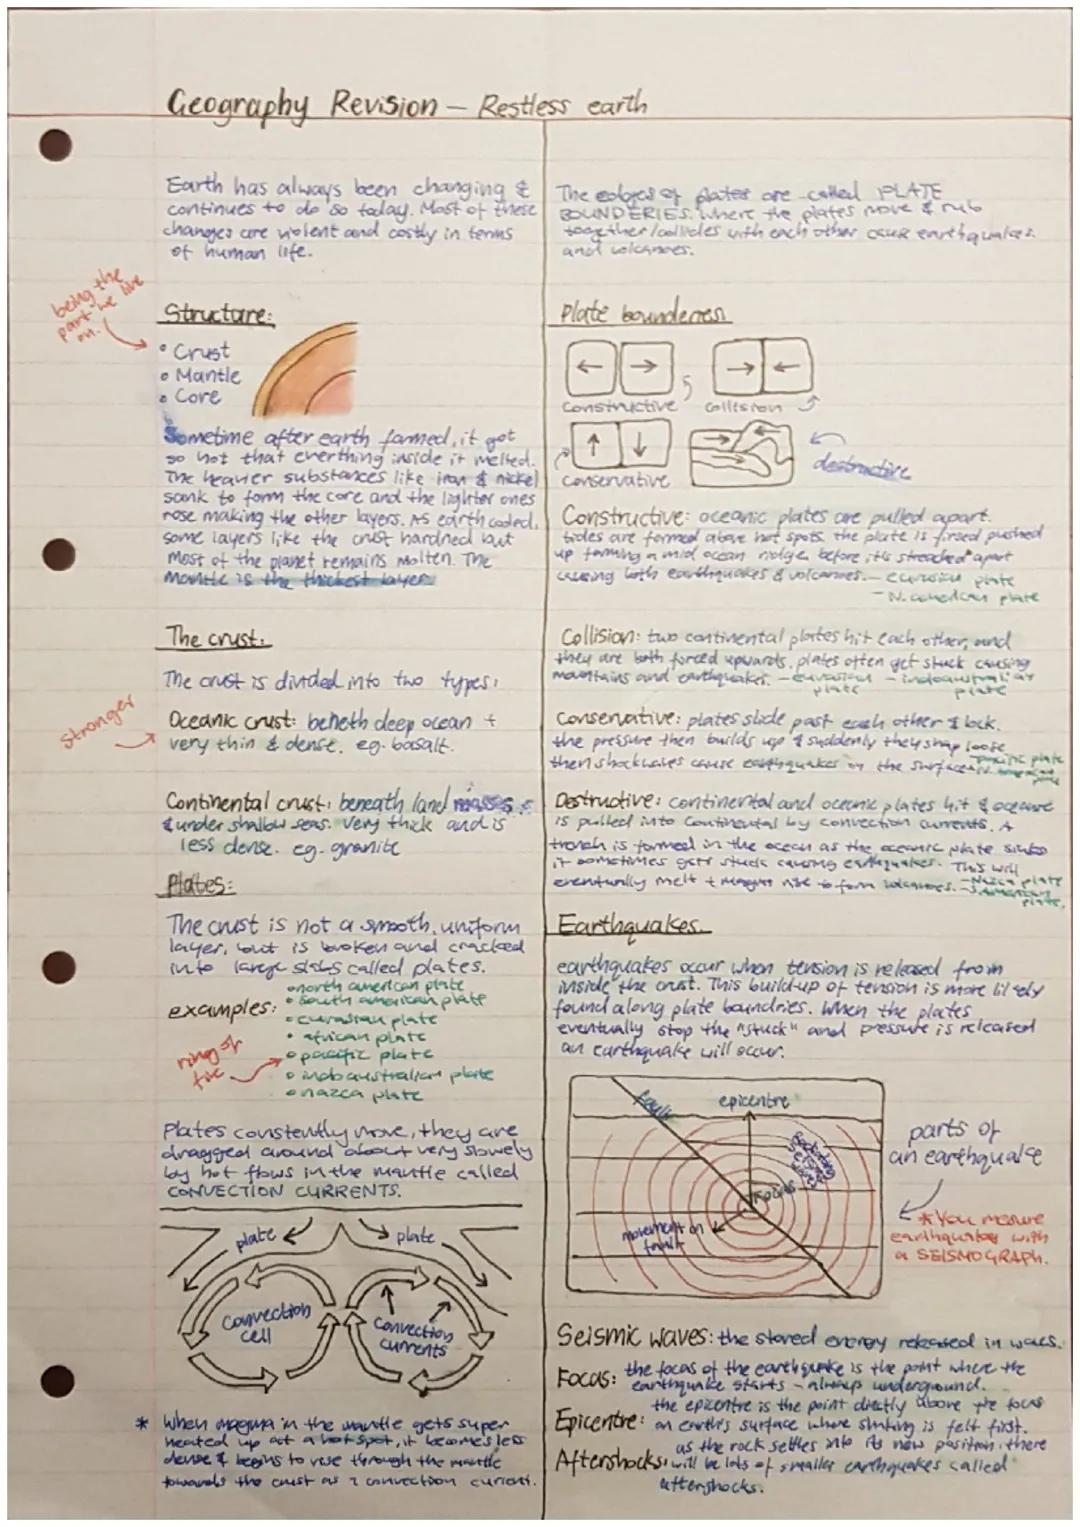 Geography Revision – Restless earth
Earth has always been changing &
continues to do so today. Most of these
changes are violent and costly in terms
of human life.
being the
part we live
on.
Structure:
• Crust
• Mantle
• Core
Sometime after earth formed, it got
so hot that everthing inside it melted.
The heavier substances like iron & nickel
sank to form the core and the lighter ones
rose making the other layers. As earth cooled,
some layers like the crust hardned but
most of the planet remains molten. The
mantle is the thickest layer.
The crust:
The crust is divided into two types:
stronger
Oceanic crust: beneth deep ocean +
very thin & dense. eg. basalt.
Continental crust: beneath land masses
& under shallow seas. very thick and is
less dense. eg. granite
Plates:
The crust is not a smooth, uniform
layer, but is broken and cracked
into large slabs called plates.
examples:
• north american plate
• south american plate
• eurasian plate
• african plate
• pacific plate
• indoaustralian plate
• nazca plate
ring of
fire
Plates constently move, they are
dragged around about very slowely
by hot flows in the mantle called
CONVECTION CURRENTS.
plate
plate
Convection
cell
Convection
currents
* When magma in the mantle gets super
heated up at a hot spot, it becomes less
dense & begins to rise through the mantle
towards the crust as a convection current.
The edges of plates are called PLATE
BOUNDERIES. Where the plates move & rub
together/collides with each other cause earthquakes
and volcanoes.
Plate bounderies
Constructive
Collision
Conservative
destructive
Constructive: oceanic plates are pulled apart.
are formed above hot spots. the plate is firsed pushed
up forming a mid ocean ridge, before it is streached apart
causing both earthquakes & volcanoes. – eurasian plate
– N. american plate
Collision: two continental plates hit each other, and
they are both forced upwards. plates often get stuck causing
mountains and earthquakes. – eurasian – indoaustralian
plate plate
Conservative: plates slide past each other & lock.
the pressure then builds up & suddenly they snap loose
then shockwaves cause earthquakes on the surface. – pacific plate
– N. american
plate
Destructive: continental and oceanic plates hit & oceanic
is pulled into continental by convection currents. A
trench is formed in the ocean as the oceanic plate sinks
it sometimes gets stuck causing earthquakes. This will
eventually melt + magma rise to form volcanoes. – Nazca plate
– S. american
plate.
Earthquakes.
earthquakes occur when tension is released from
inside the crust. This build-up of tension is more likely
found along plate boundries. When the plates
eventually stop the "stuck" and pressure is released
an earthquake will occur.
fault
epicentre
Radiating
seismic
waves
focus
movement on
fault
parts of
an earthquake
* You mesure
earthquakes with
a SEISMOGRAPH.
Seismic waves: the stored energy released in waves.
Focus: the focus of the earthquake is the point where the
earthquake starts – always underground.
Epicentre: the epicentre is the point directly above the focus
on earth's surface where shaking is felt first.
Aftershocks: as the rock settles into its new position, there
will be lots of smaller earthquakes called
aftershocks.